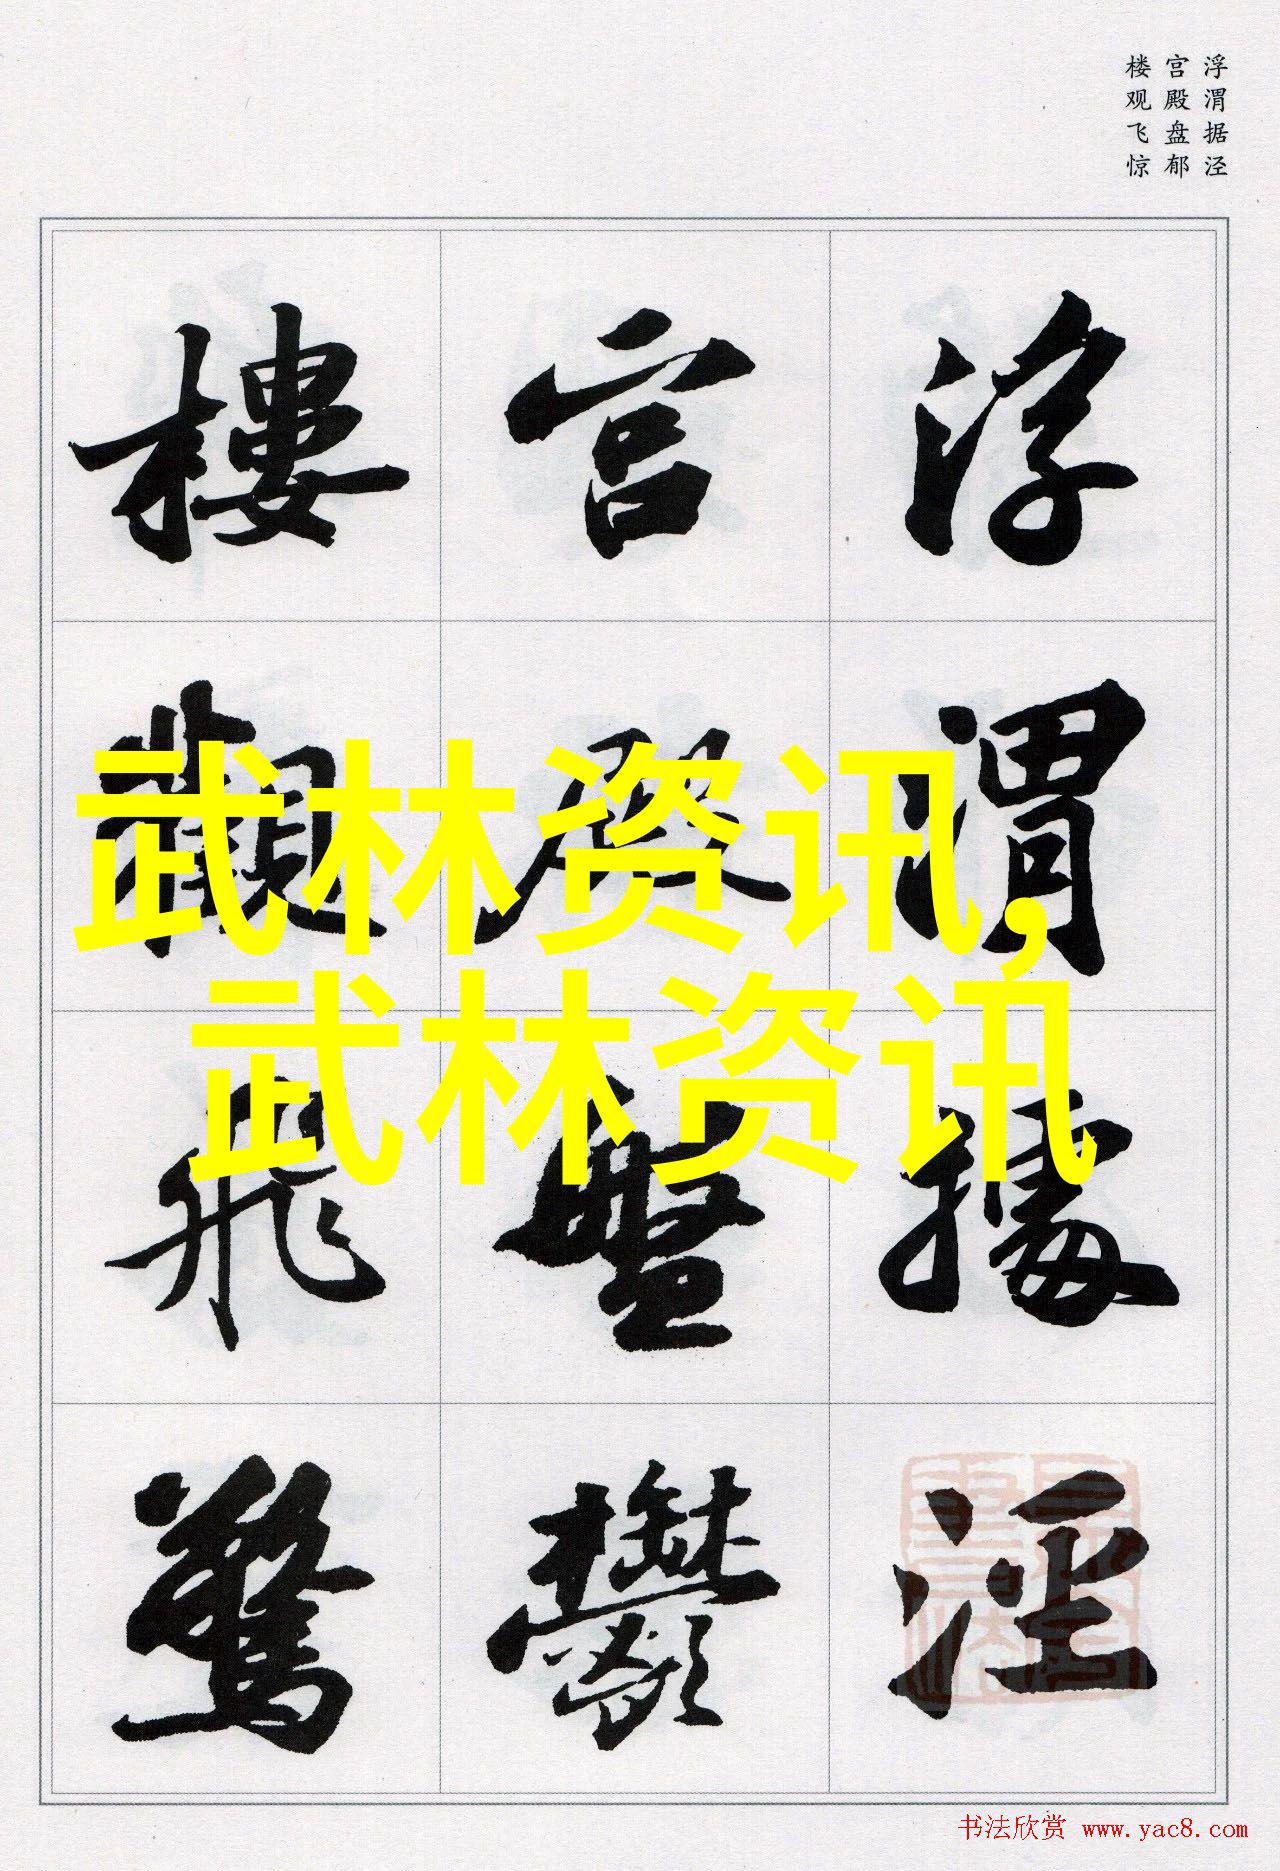 浮渭据泾
宫殿盘郁
楼观飞惊
浮渭據涇
宫殿盤鬱
樓觀飛驚
武林资讯,
武林资讯
书法欣赏 www.yac8.com